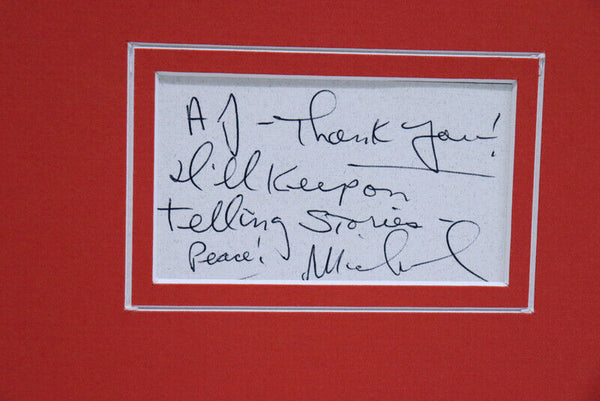 AJ - Thank You!
I'll Keep on
Telling Stories -
Peace! Michael